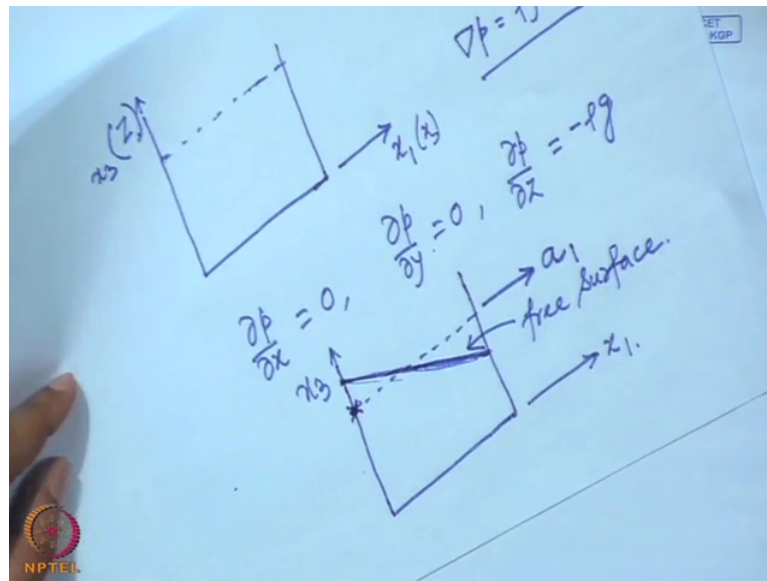 ∇p =
CET
KGP
x₃ (z)
x₁(x)
∂p/∂x = 0, ∂p/∂y = 0, ∂p/∂z = -ρg
a₁
free surface.
x₃
x₁.
NPTEL